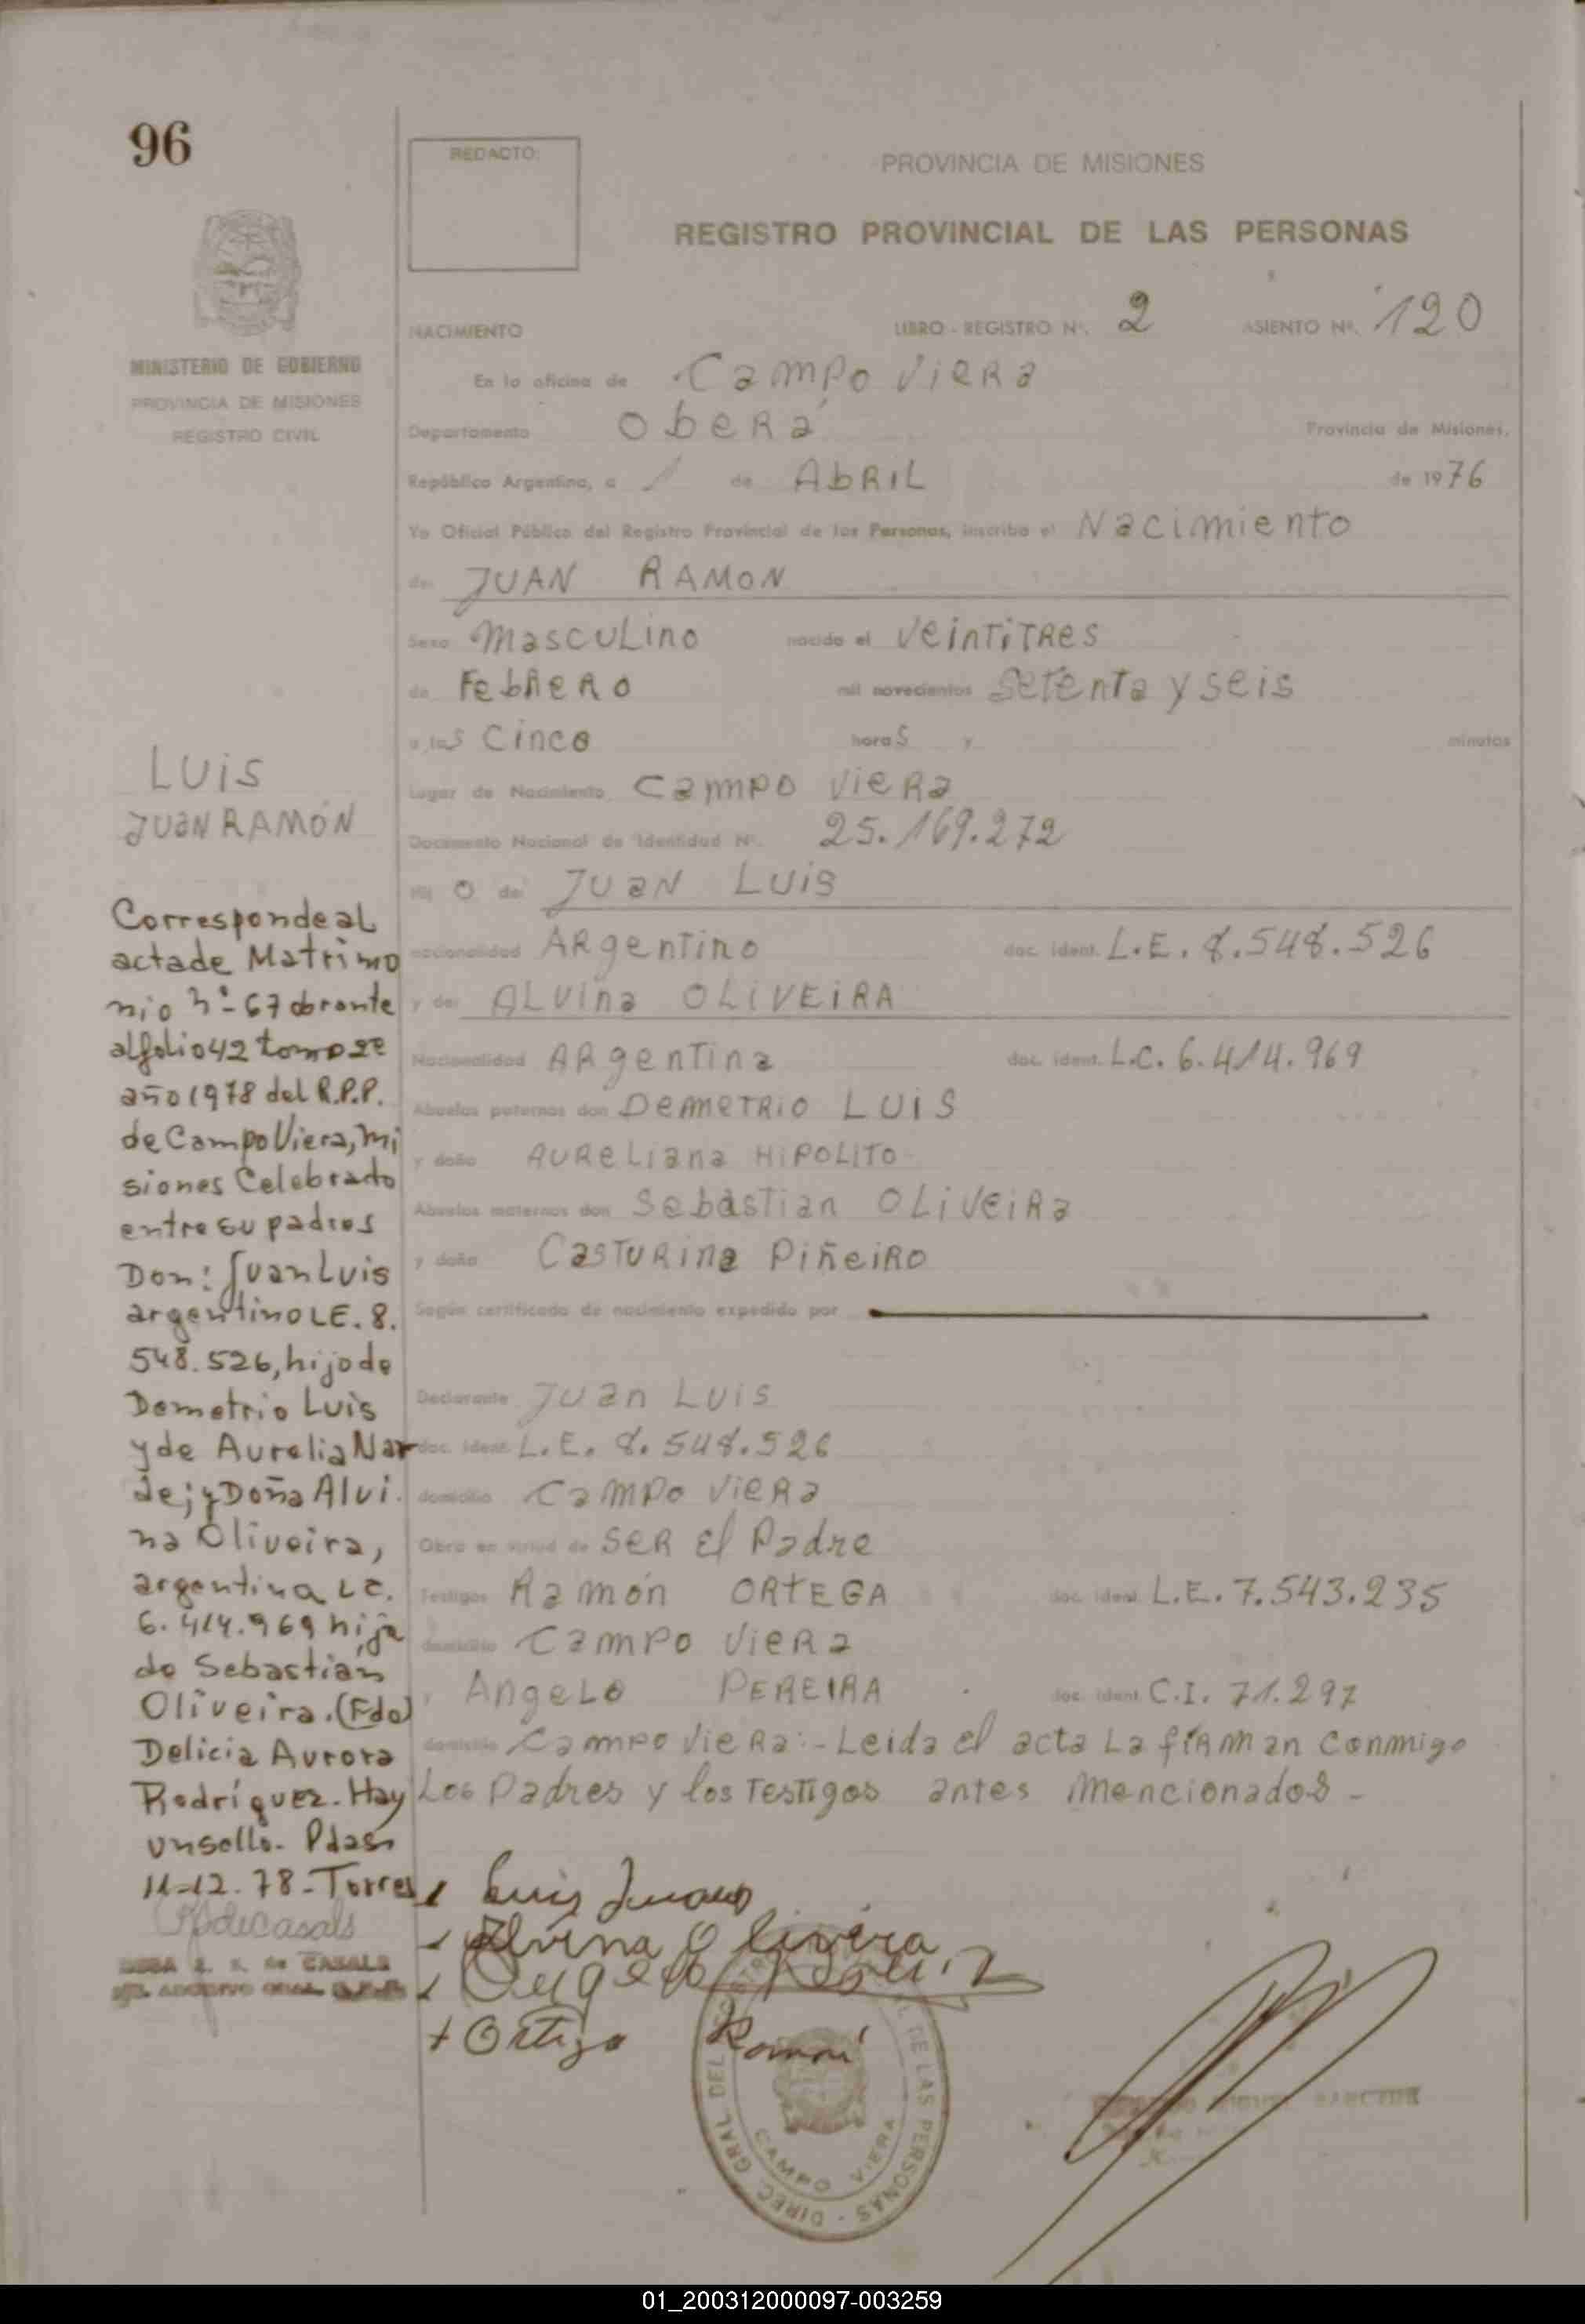 96
REDACTO:
PROVINCIA DE MISIONES
REGISTRO PROVINCIAL DE LAS PERSONAS
MINISTERIO DE GOBIERNO
PROVINCIA DE MISIONES
REGISTRO CIVIL
NACIMIENTO LIBRO - REGISTRO Nº. 2 ASIENTO Nº. 120
En la oficina de Campo Viera
Departamento Oberá Provincia de Misiones,
República Argentina, a 1 de ABRIL de 1976
Yo Oficial Público del Registro Provincial de las Personas, inscribo el Nacimiento
de: JUAN RAMON
Sexo Masculino nacido el Veintitres
de Febrero mil novecientos Setenta y seis
a las Cinco horas y minutos
Lugar de Nacimiento Campo Viera
Documento Nacional de Identidad Nº. 25.169.272
Hij o de: Juan Luis
nacionalidad Argentino doc. ident. L.E. 8.548.526
y de: Alvina OLIVEIRA
Nacionalidad Argentina doc. ident. L.C. 6.414.969
Abuelos paternos don Demetrio LUIS
y doña Aureliana HIPOLITO
Abuelos maternos don Sebastian OLiveira
y doña Casturina Piñeiro
Según certificado de nacimiento expedido por
Declarante Juan Luis
doc. ident. L.E. 8.548.526
domicilio Campo Viera
Obra en virtud de ser el Padre
Testigos Ramón ORTEGA doc. ident. L.E. 7.543.235
domicilio Campo Viera
y Angelo PEREIRA doc. ident. C.I. 71.297
domicilio Campo Viera:- Leida el acta la firman conmigo
Los Padres y los Testigos antes mencionados -
LUIS
JUAN RAMÓN
Corresponde al
acta de Matrimo
nio nº- 67 obrante
al folio 42 tomo 2º
año 1978 del R.P.P.
de Campo Viera, Mi
siones Celebrado
entre su padres
Don: Juan Luis
argentino LE. 8.
548.526, hijo de
Demetrio Luis
y de Aurelia Nar
de; y Doña Alvi.
na Oliveira,
argentina LC.
6.414.969 hija
de Sebastián
Oliveira. (Fdo)
Delicia Aurora
Rodríguez. Hay
un sello. Pdas
11-12.78 - Torres
de CASALS
Luis Juan
Alvina Olivera
Angelo
Ortega Ramon
DIREC. GRAL DEL REGISTRO DE LAS PERSONAS -
CAMPO VIERA
01_200312000097-003259